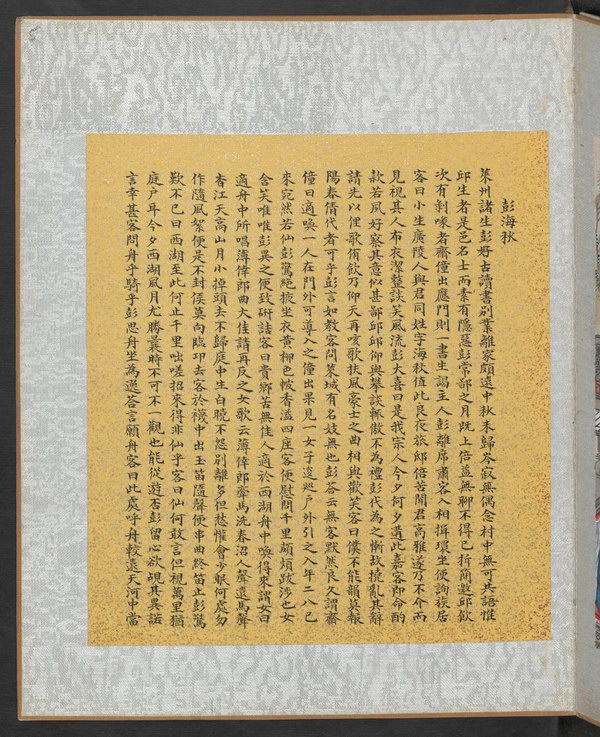 彭海秋
萊州諸生彭好古讀書別業離家頗遠中秋未歸岑寂無偶念村中無可共語惟
邱生者是邑名士而素有隱惡彭常鄙之月既上倍益無聊不得已折簡邀邱飲
次有剝啄者齋僮出應門則一書生謁主人彭離席肅客入相揖環坐便詢族居
客曰小生廣陵人與君同姓字海秋值此良夜旅邸倍苦聞君高雅遂乃不介而
見視其人布衣潔整談笑風流彭大喜曰是我宗人今夕何夕遘此嘉客即命酌
款若夙好察其意似甚鄙邱邱仰與攀談輒傲不為禮彭代為之慚故撓亂其辭
請先以俚歌侑飲乃仰天再咳歌扶風豪士之曲相與歡笑客曰僕不能韻莫報
陽春倩代者可乎彭言如教客問萊城有名妓無也彭荅云無客默然良久謂齋
僮曰適喚一人在門外可導入之僮出果見一女子逡巡戶外引之入年二八已
來宛然若仙彭驚絕掖坐衣黃柳色帔香溢四座客便慰問千里頗煩跋涉也女
含笑唯唯彭異之便致研詰客曰貴鄉苦無佳人適於西湖舟中喚得來謂女曰
適舟中所唱薄倖郎曲大佳請再反之女歌云薄倖郎牽馬洗春沼人聲遠馬聲
杳江天高山月小掉頭去不歸庭中生白曉不怨別離多但愁惟會少眠何處勿
作隨風絮便是不封侯莫向臨卭去客於襪中出玉笛隨聲便串曲終笛止彭驚
歎不已曰西湖至此何止千里咄嗟招來得非仙乎客曰仙何敢言但視萬里猶
庭戶耳今夕西湖風月尤勝曩時不可不一觀也能從遊否彭留心欲覘其異諾
言幸甚客問舟乎騎乎彭思舟坐為逸荅言願舟客曰此處呼舟較遠天河中當